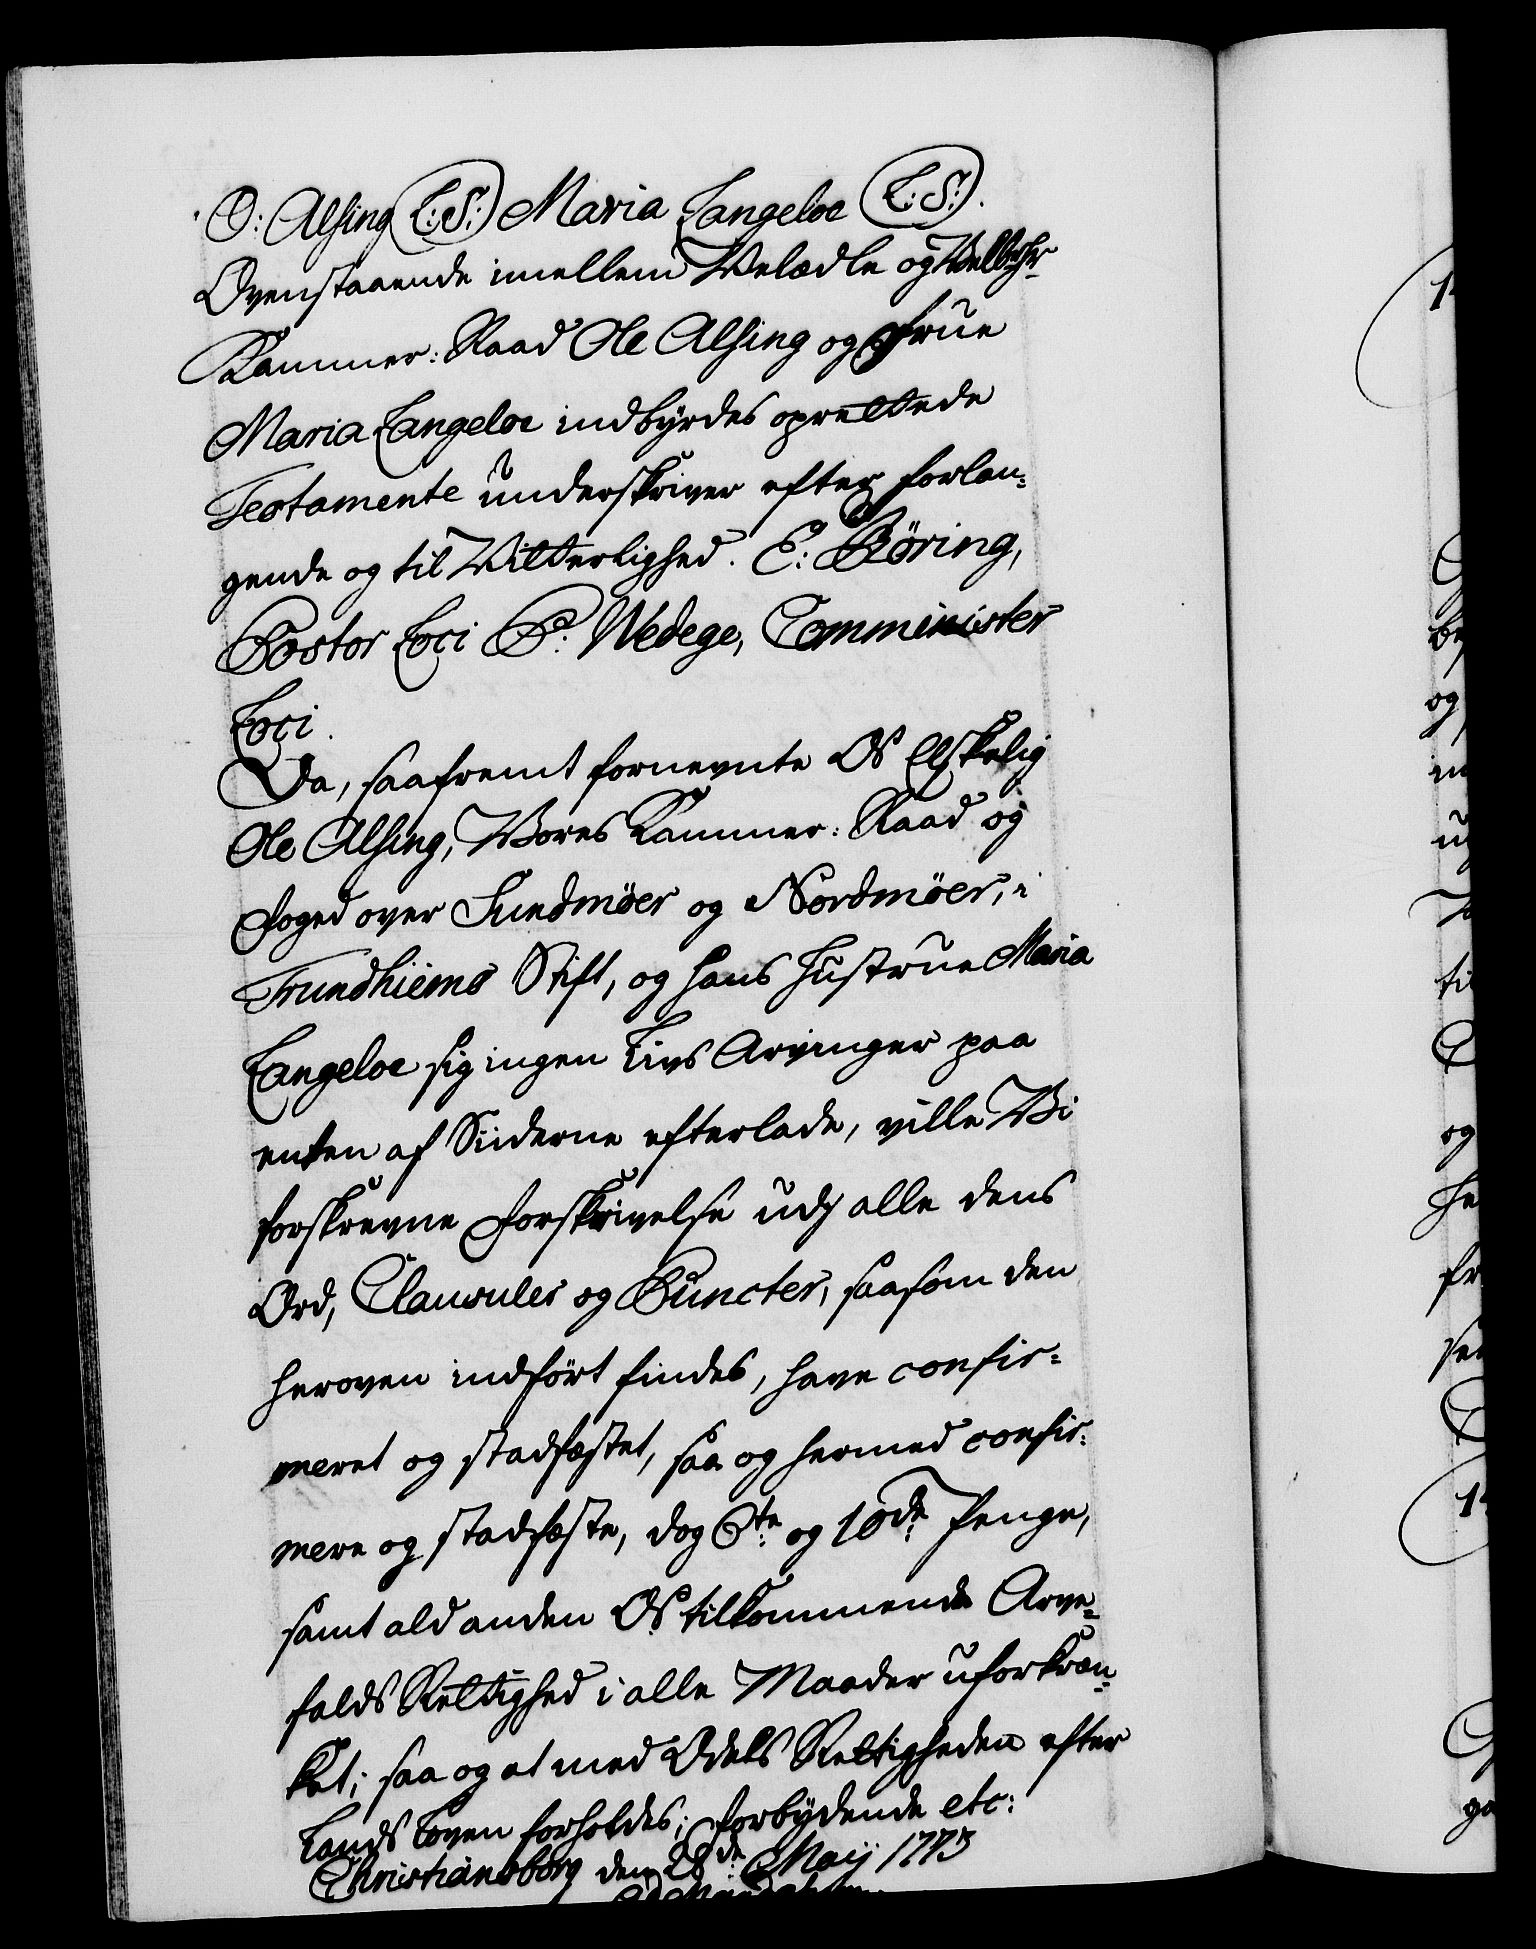 O: Alsing (L:S:) Maria Langeloe (L:S:).
Ovenstaaende imellem Velædle og Velbr
Kammer: Raad Ole Alsing og Frue
Maria Langeloe indbyrdes oprettede
Testamente underskriver efter forlan:
gende og til Vitterlighed. E: Röring,
Pastor Loci P: Wedege, Comminister
Loci.
Da, saafremt fornevnte Os Elskelig
Ole Alsing, Vores Kammer: Raad og
Foged over Sundmöer og Nordmöer, i
Trundhiems Stift, og hans Hustrue Maria
Langeloe sig ingen Livs Arvinger paa
enten af Siiderne efterlade, ville Vi
forskrevne Forskrivelse udj alle dens
Ord, Clausuler og Puncter, saasom den
heroven indfört findes, have confir=
meret og stadfæstet, saa og hermed confir:
mere og stadfæste, dog 6te og 10de Penge,
samt ald anden Os tilkommende Arve=
falds Rettighed i alle Maader uforkræn=
ket; saa og at med Odels Rettigheden efter
Lands Loven forholdes; Forbydende etc:
Christiansborg den 28de Maij 1773